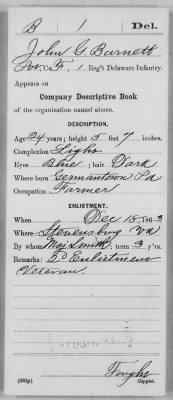 B 1 Del.
John G. Barnett
Co. F, 1 Reg't Delaware Infantry.
Appears on
Company Descriptive Book
of the organization named above.
DESCRIPTION.
Age 24 years; height 5 feet 7 inches.
Complexion Light
Eyes Blue; hair Dark
Where born Germantown Pa
Occupation Farmer
ENLISTMENT.
When Dec 18, 1863
Where Stevensburg Va
By whom Maj Smith; term 3 y'rs.
Remarks: 2d Enlistment
Veteran.
(383g) Copyist.